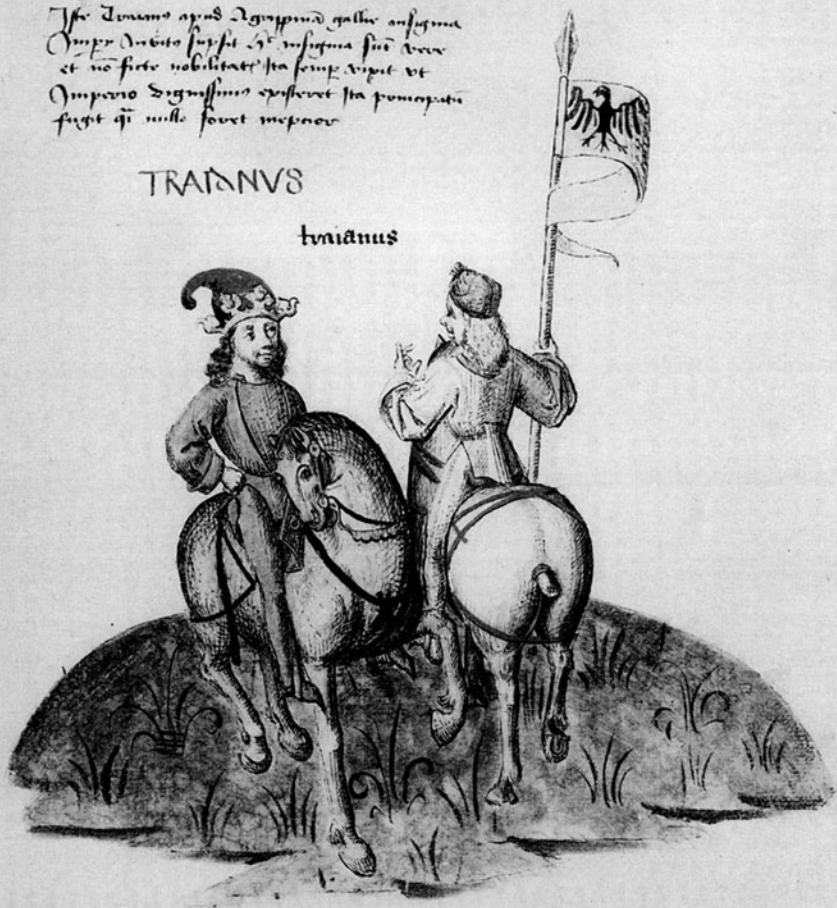 Iste Traianus apud Agrippinā gallie insignia
Impery Invito supsit hec insignia sut vere
et nō ficte nobilitatis Ita semper vixit vt
Imperio dignissimus existeret Ita principatū
fugit qi nullo foret
TRAIANVS
traianus